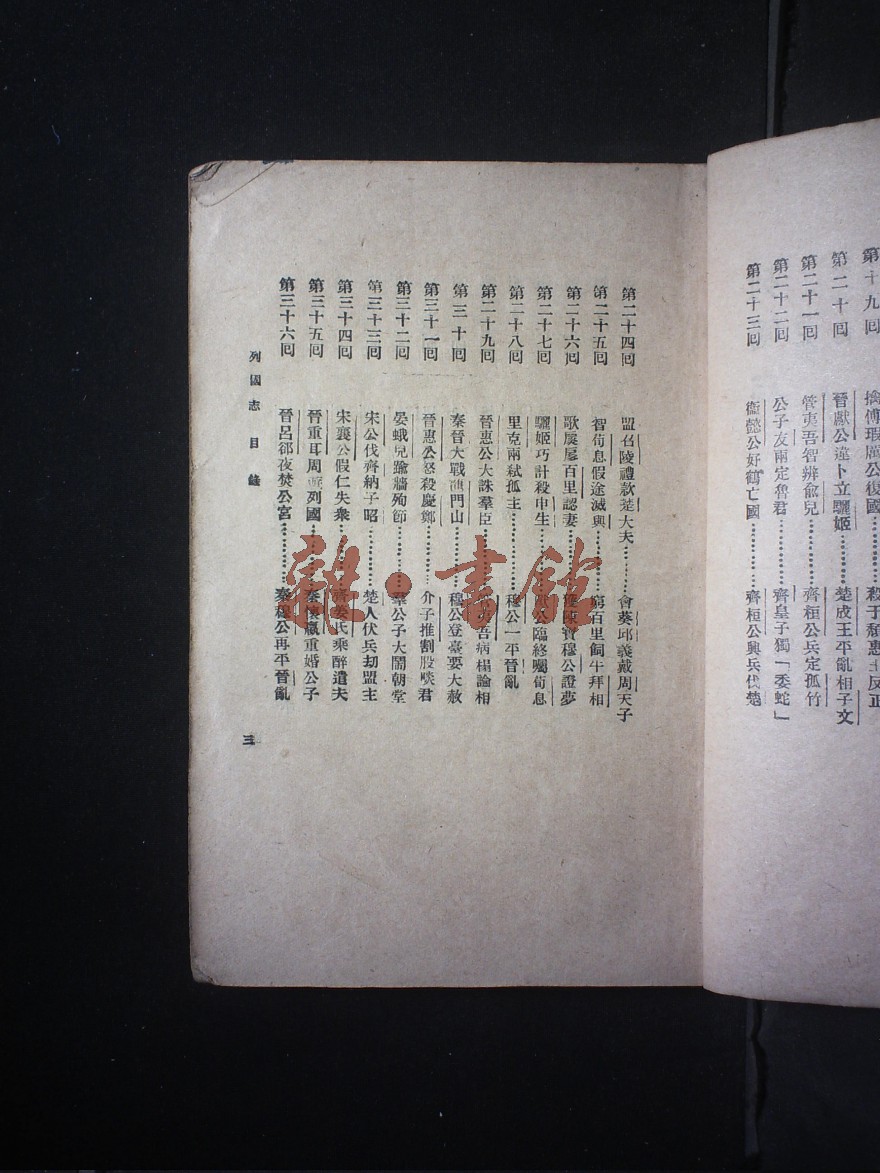 第十九回 擒傅瑕厲公復國………殺子頹惠王反正
第二十回 晉獻公違卜立驪姬………楚成王平亂相子文
第二十一回 管夷吾智辨兪兒………齊桓公兵定孤竹
第二十二回 公子友兩定魯君………齊皇子獨「委蛇」
第二十三回 衞懿公好鶴亡國………齊桓公興兵伐楚
第二十四回 盟召陵禮款楚大夫………會葵邱義戴周天子
第二十五回 智荀息假途滅………窮百里飼牛拜相
第二十六回 歌扊扅百里認妻………陳寶穆公證夢
第二十七回 驪姬巧計殺申生………公臨終囑荀息
第二十八回 里克兩弒孤主………穆公一平晉亂
第二十九回 晉惠公大誅羣臣………吾病榻論相
第三十回 秦晉大戰門山………穆公登臺要大赦
第三十一回 晉惠公怒殺慶鄭………介子推割股啖君
第三十二回 晏蛾兒踰牆殉節………羣公子大鬧朝堂
第三十三回 宋公伐齊納子昭………楚人伏兵劫盟主
第三十四回 宋襄公假仁失衆………齊姜氏乘醉遣夫
第三十五回 晉重耳周列國………秦懷嬴重婚公子
第三十六回 晉呂郤夜焚公宮………秦穆公再平晉亂
列國志 目錄
三
雜·書館